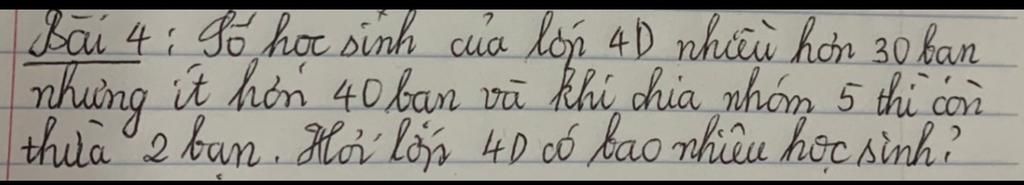 Bài 4: Số học sinh của lớp 4D nhiều hơn 30 bạn
nhưng ít hơn 40 bạn và khi chia nhóm 5 thì còn
thừa 2 bạn. Hỏi lớp 4D có bao nhiêu học sinh?